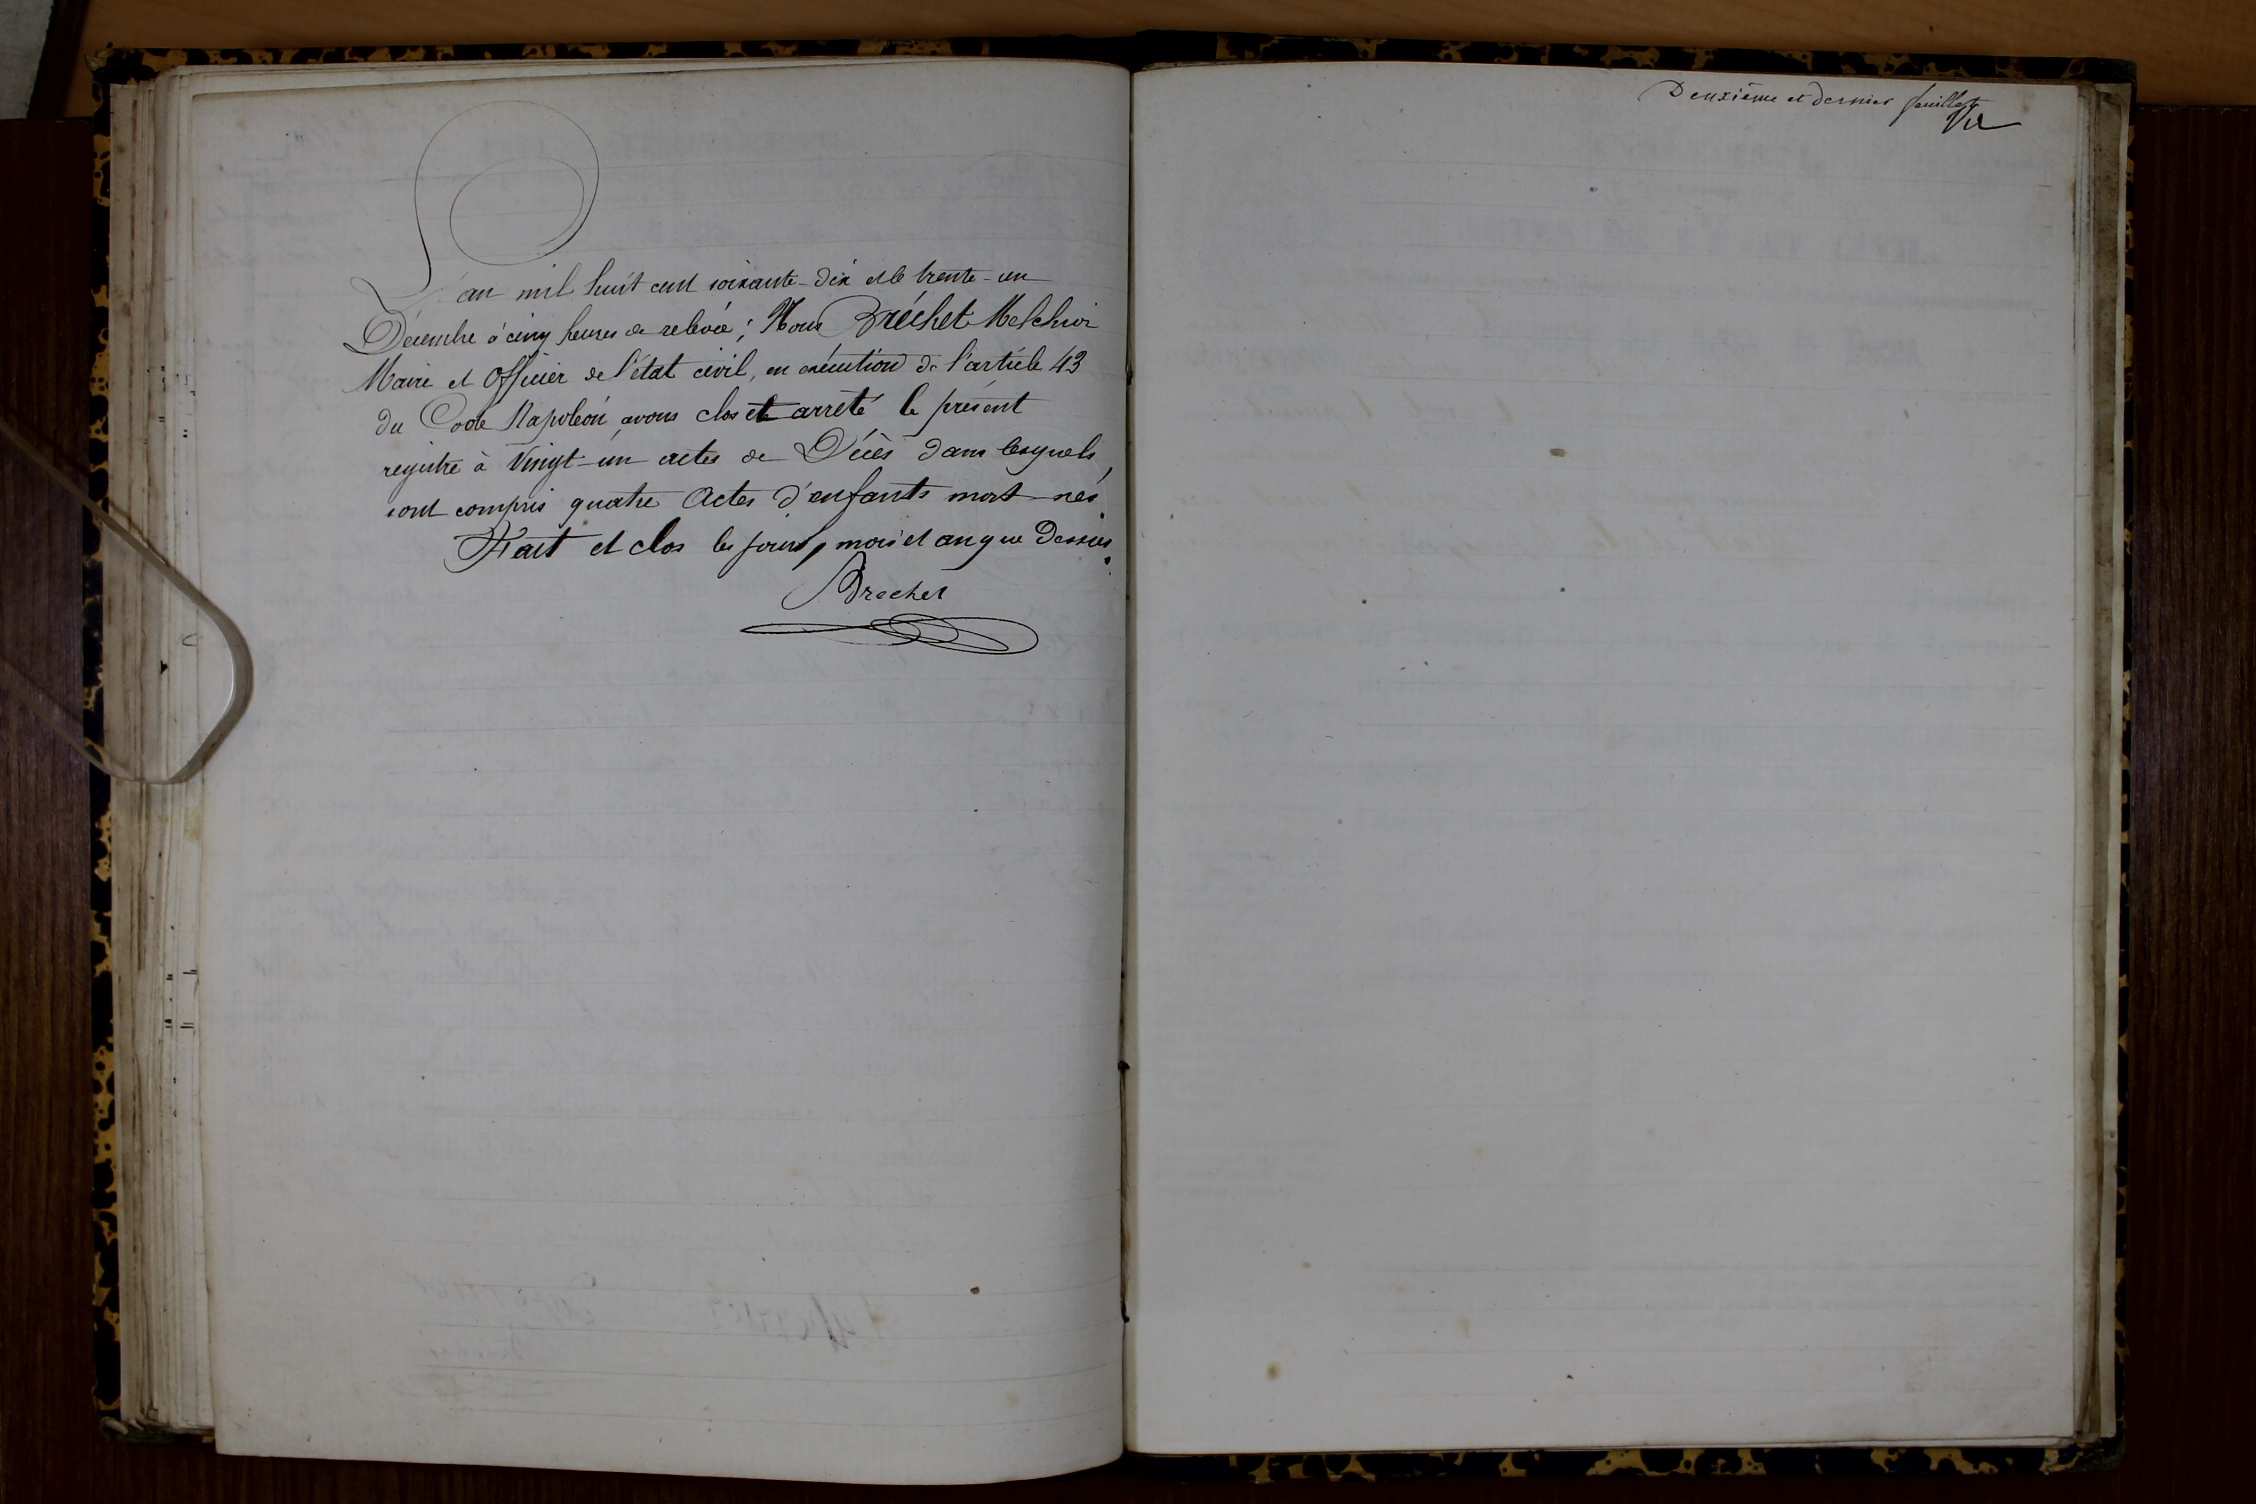 L'an mil huit cent soixante-dix et le trente-un
Décembre à cinq heures de relevée; Nous Bréchet Melchior
Maire et Officier de l'état civil, en exécution de l'article 43
du Code Napoléon avons clos et arrêté le présent
registre à Vingt-un actes de Décès dans lesquels
sont compris quatre Actes d'enfants mort-nés.
Fait et clos les jours, mois et an que Dessus.
Brechet
Deuxième et dernier feuillet